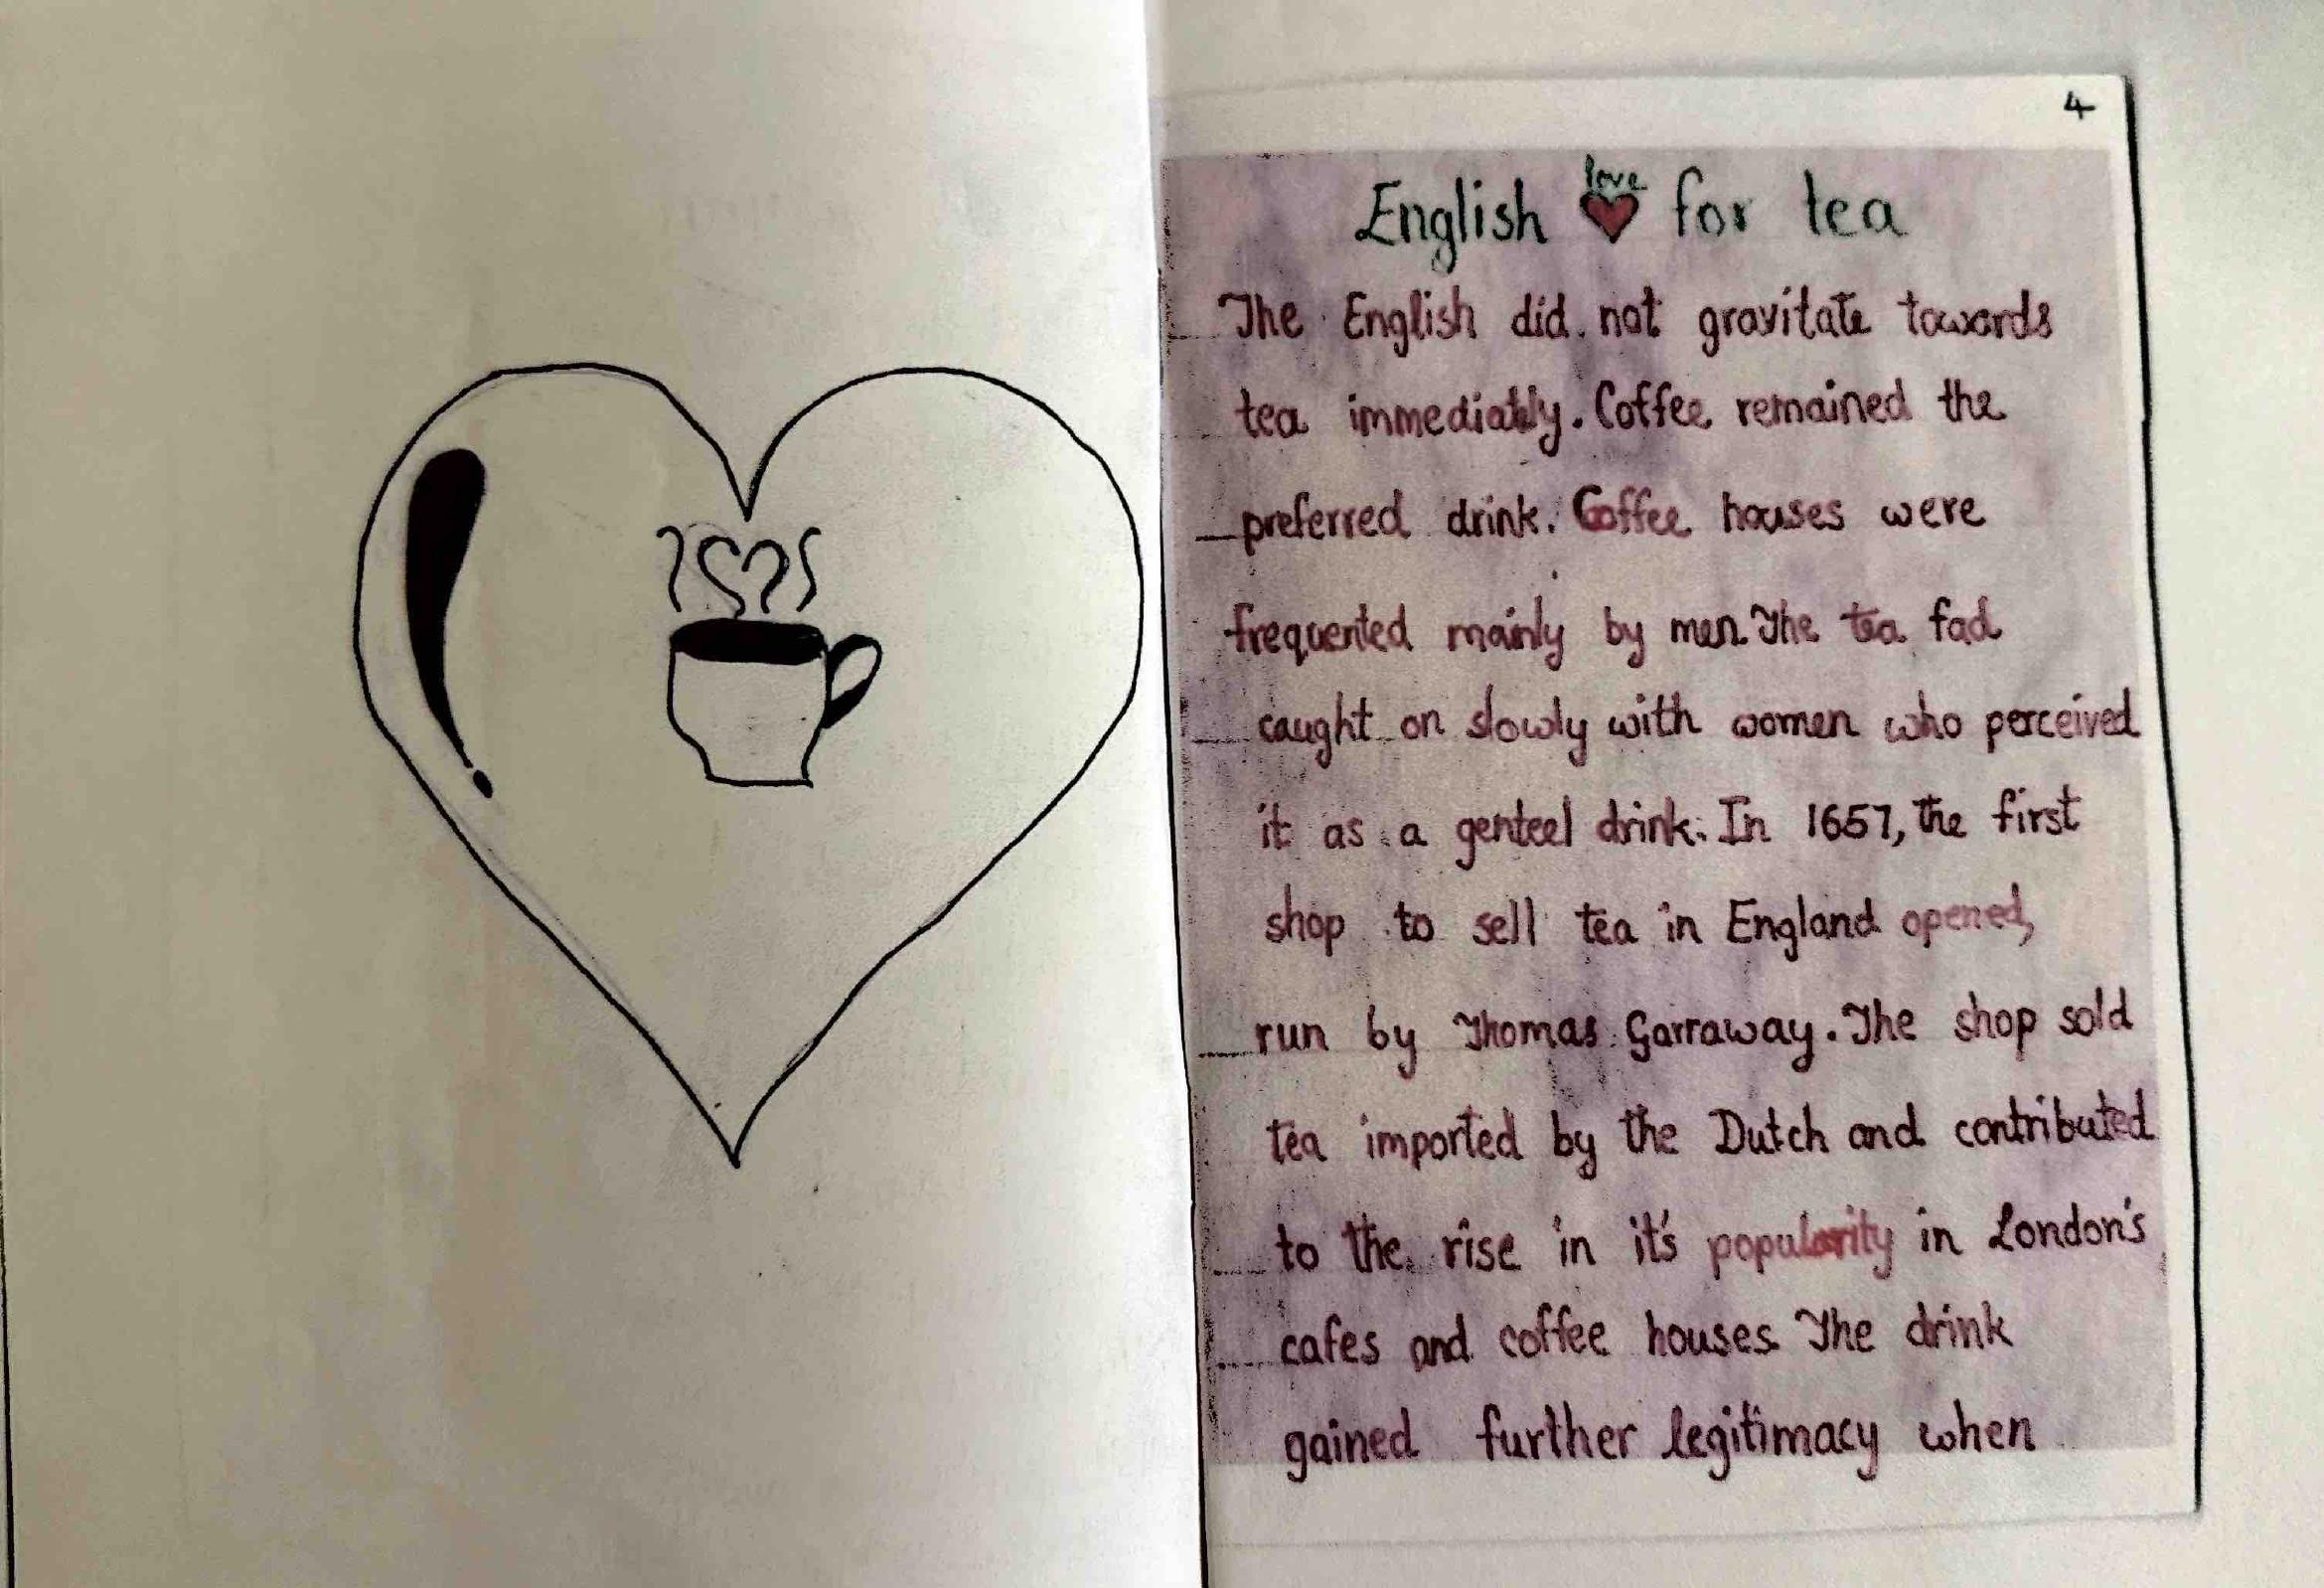 4
English love ❤ for tea
The English did not gravitate towards
tea immediately. Coffee remained the
preferred drink. Coffee houses were
frequented mainly by men. The tea fad
caught on slowly with women who perceived
it as a genteel drink. In 1657, the first
shop to sell tea in England opened,
run by Thomas Garraway. The shop sold
tea imported by the Dutch and contributed
to the rise in it's popularity in London's
cafes and coffee houses. The drink
gained further legitimacy when